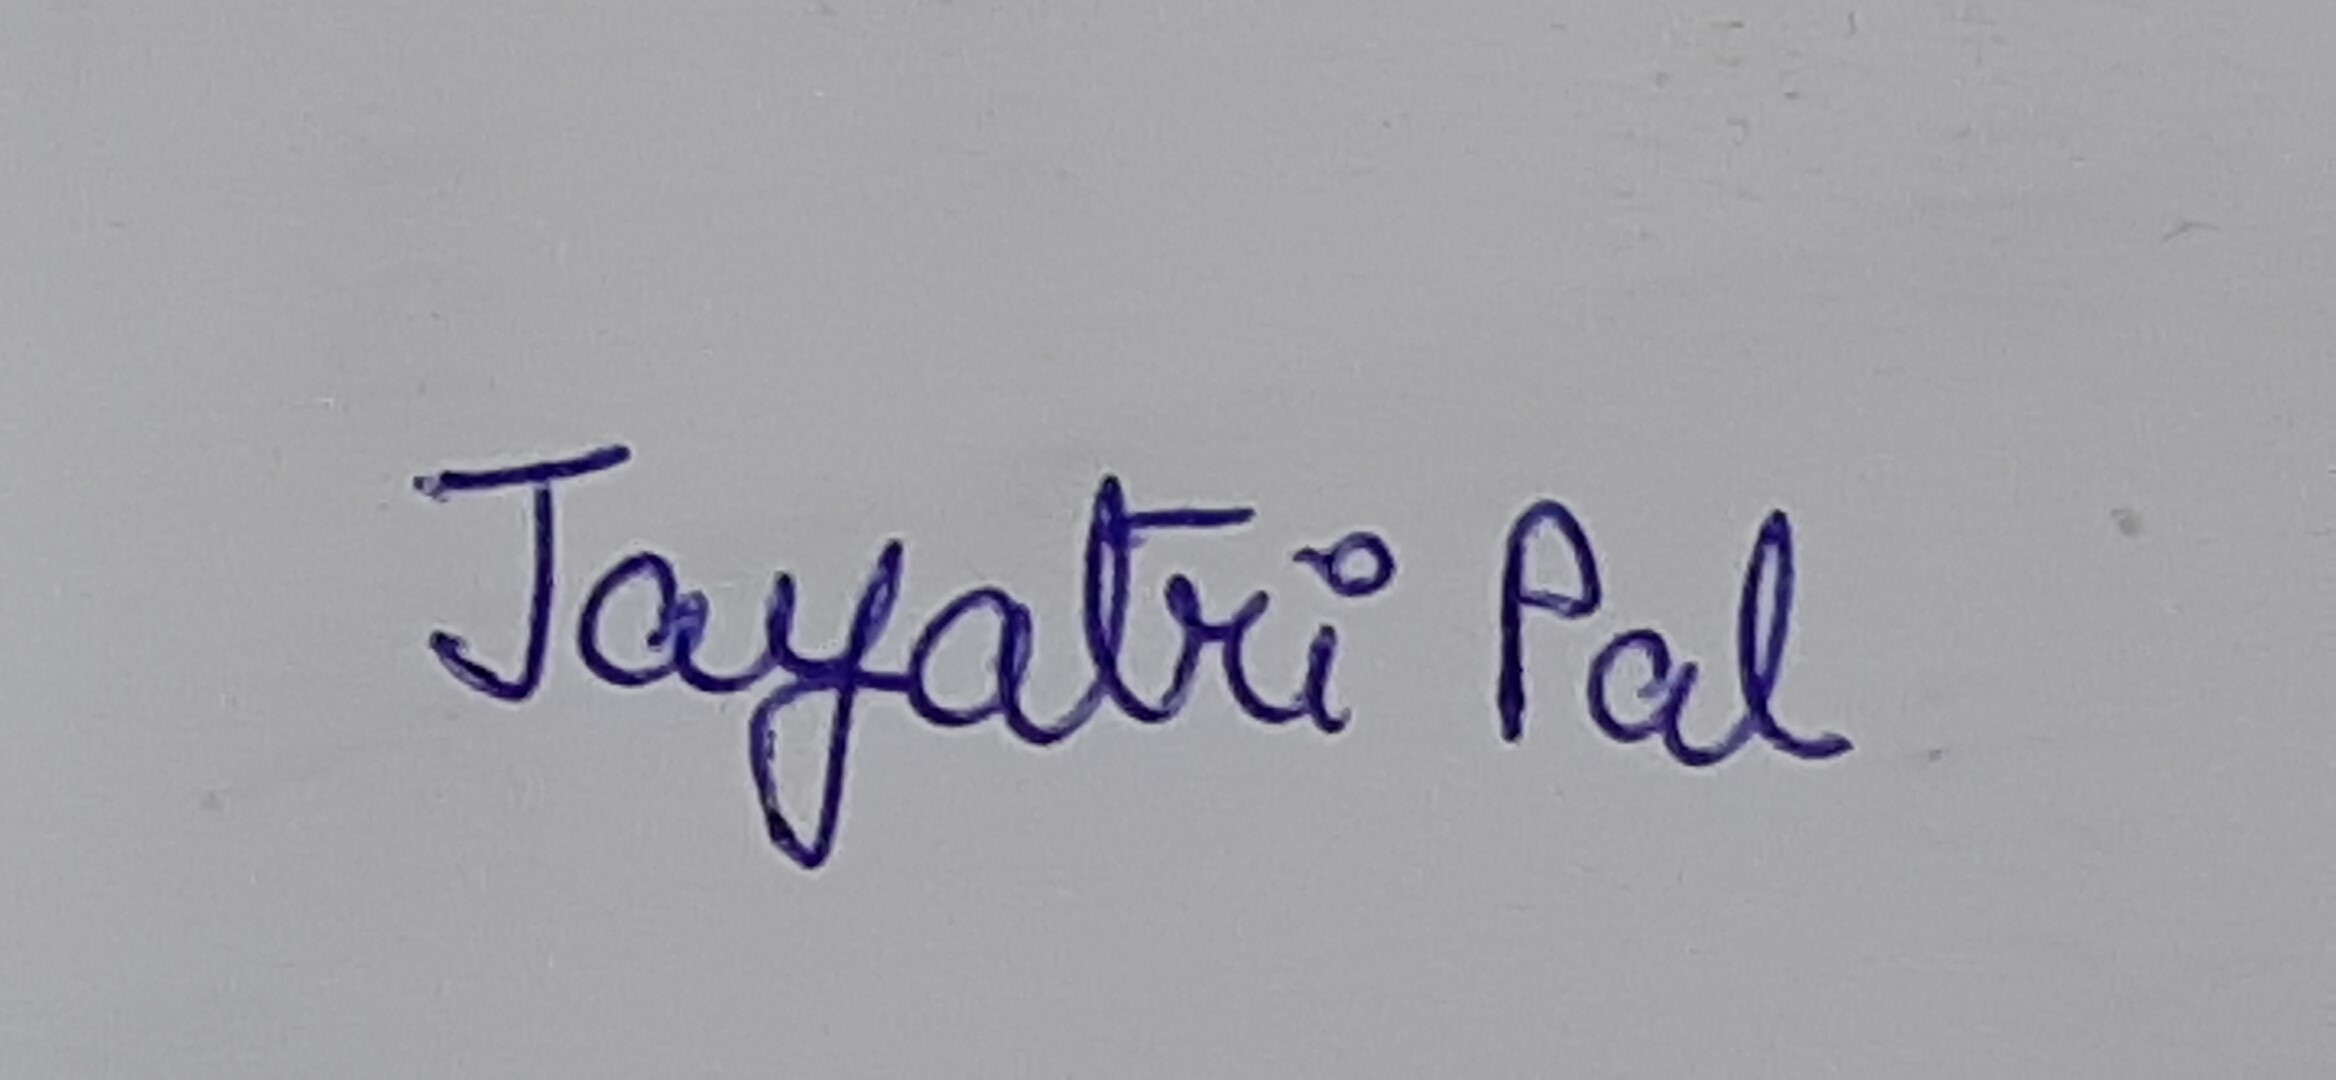 Jayatri Pal